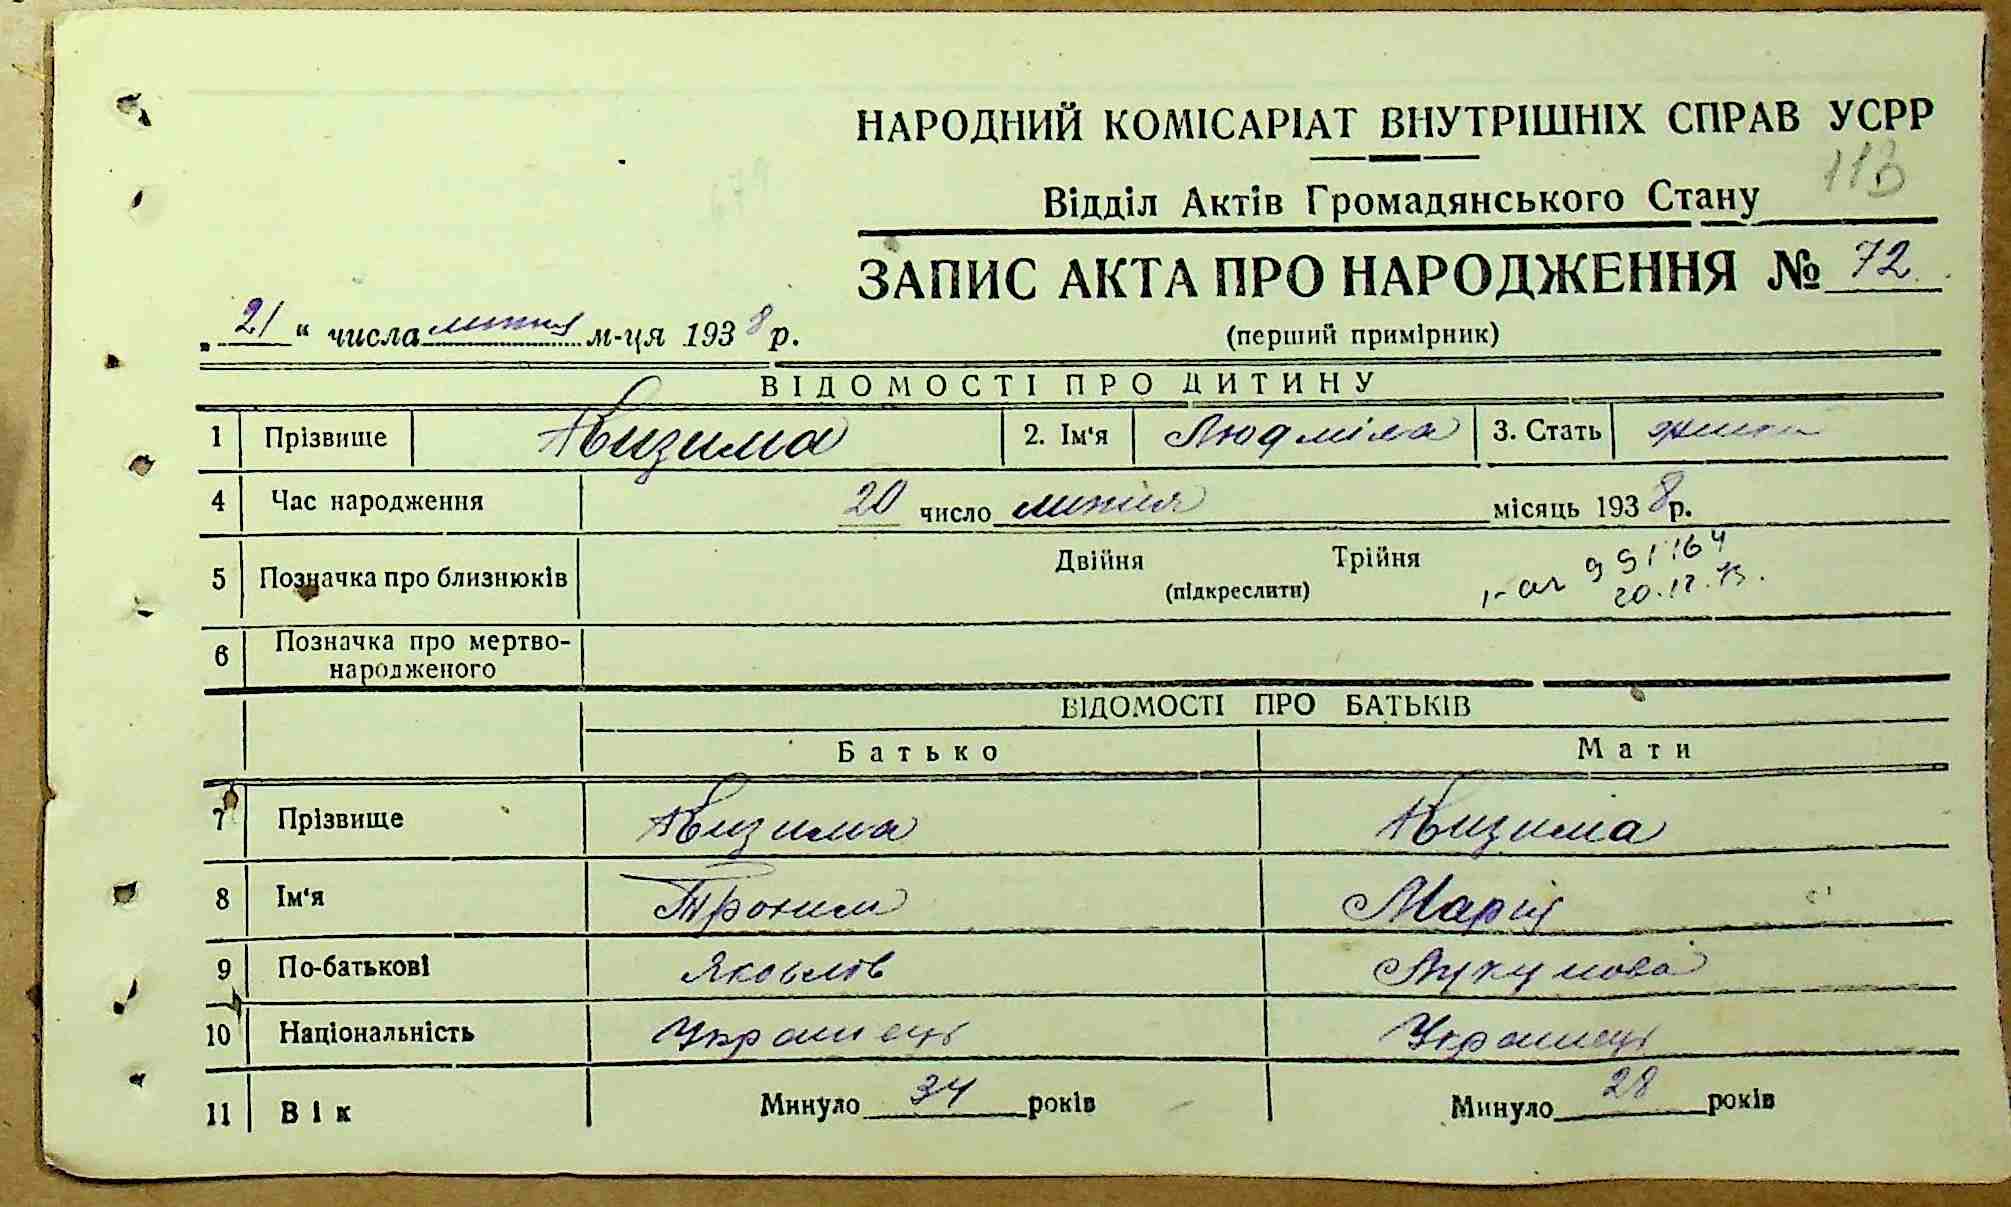 НАРОДНИЙ КОМІСАРІАТ ВНУТРІШНІХ СПРАВ УСРР
113
Відділ Актів Громадянського Стану
ЗАПИС АКТА ПРО НАРОДЖЕННЯ № 72
„ 21 “ числа липня м-ця 1938 р.
(перший примірник)
ВІДОМОСТІ ПРО ДИТИНУ
1 Прізвище Кизима 2. Ім‘я Людміла 3. Стать
4 Час народження 20 число липня місяць 1938 р.
5 Позначка про близнюків Двійня Трійня
(підкреслити)
20.12.73.
6 Позначка про мертво-
народженого
ВІДОМОСТІ ПРО БАТЬКІВ
Батько Мати
7 Прізвище Кизима Кизима
8 Ім‘я Трохим Марія
9 По-батькові Яковлів
10 Національність Українець Українець
11 Вік Минуло 34 років Минуло 28 років